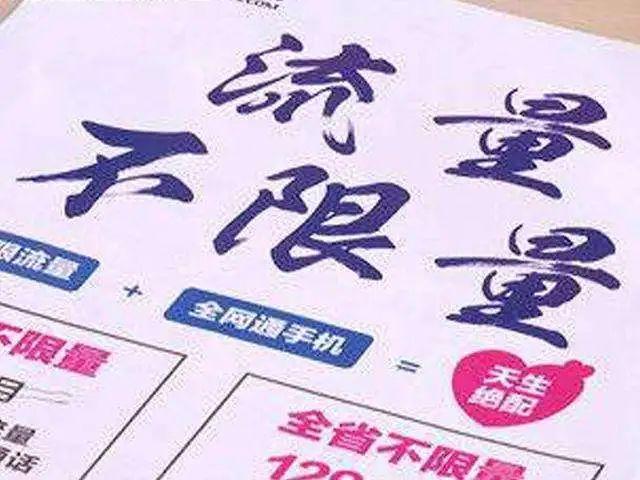 .COM
流量
不限量
限流量
+
全网通手机
=
天生
绝配
不限量
月
流量
通话
全省不限量
129